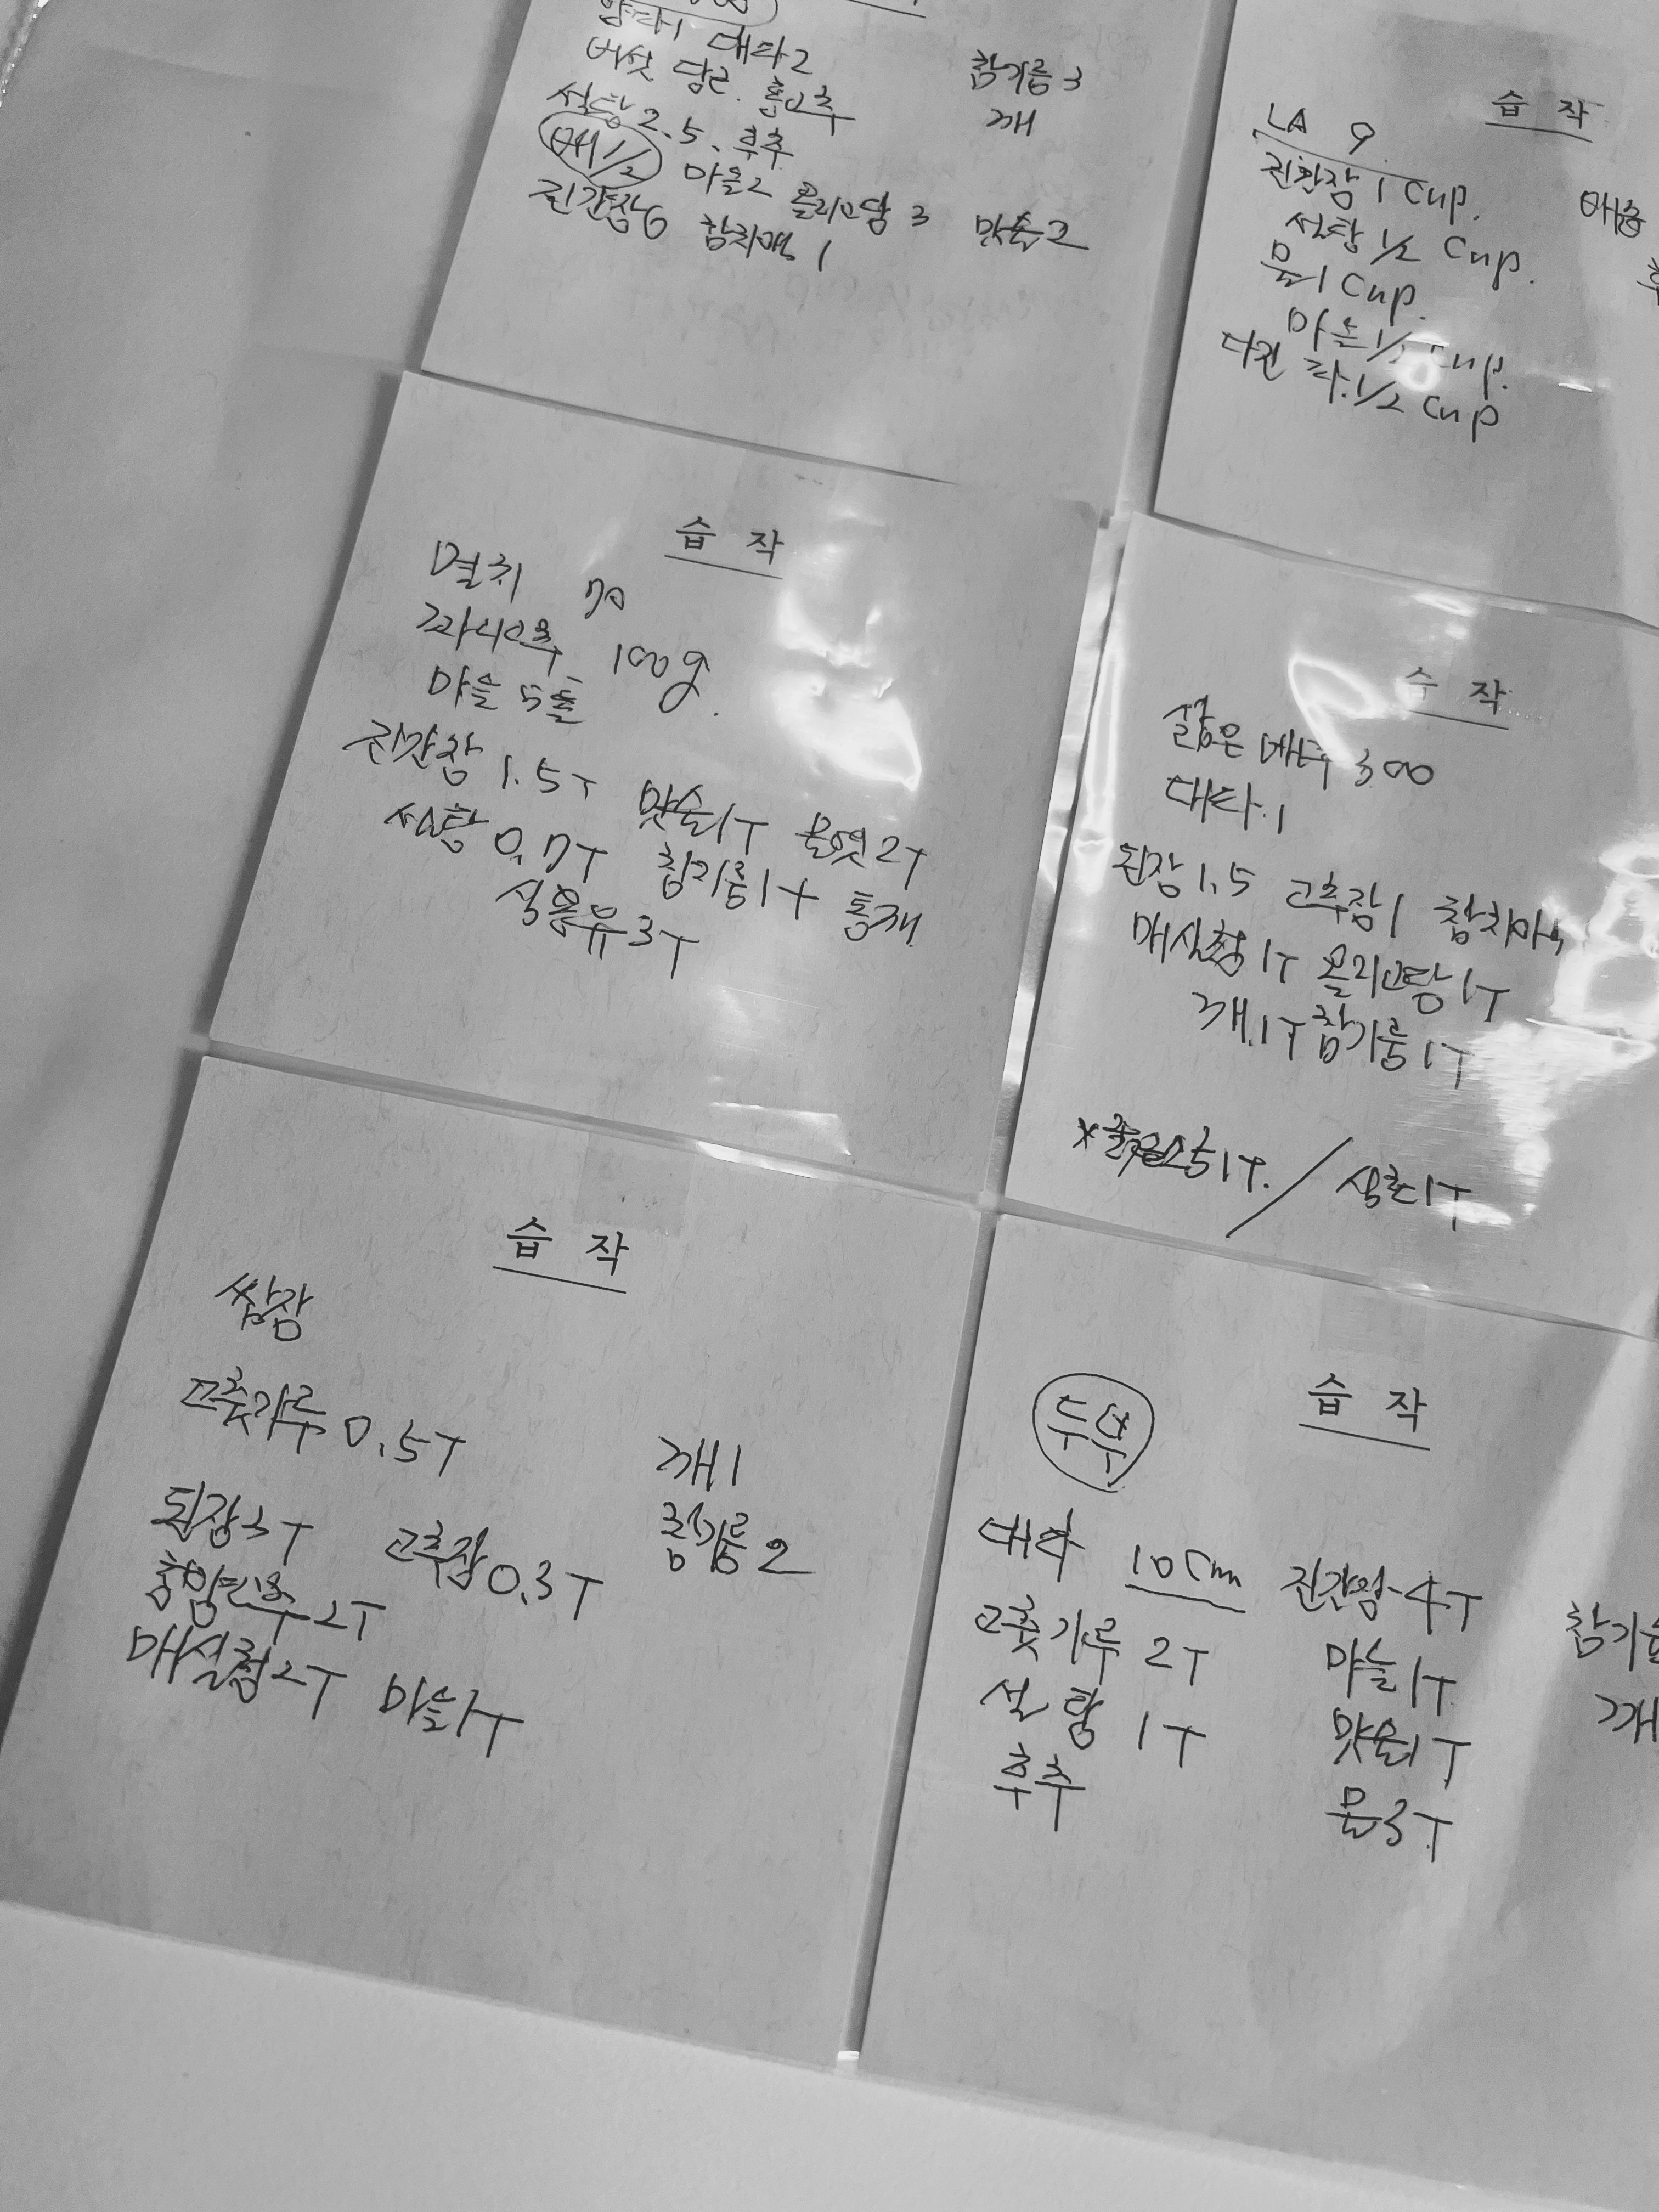 양파1 대파2
버섯 당근. 홍고추
설탕 2.5. 후추
배 1/2 마늘2 올리고당 3 맛술2
진간장6 참치액 1
참기름 3
깨
습 작
LA 9
진간장 1 Cup.
설탕 1/2 Cup.
물 1 Cup.
마늘 1/ Cup.
다진 파. 1/2 Cup
습 작
멸치 70
꽈리고추 100g.
마늘 5톨
진간장 1.5T 맛술1T 물엿2T
설탕 0.7T 참기름1T 통깨
식용유3T
습 작
삶은 300
대파.1
된장1.5 고추장1
매실청 1T 올리고당 1T
깨.1T 참기름 1T
1T. / 1T
습 작
쌈장
고춧가루 0.5T
깨1
된장3T 고추장0.3T
참기름 2
청양고추 2T
매실청2T 마늘1T
습 작
두부
대파 10cm 진간장-4T
고춧가루 2T 마늘1T
설탕 1T 맛술1T
후추 물3T
깨